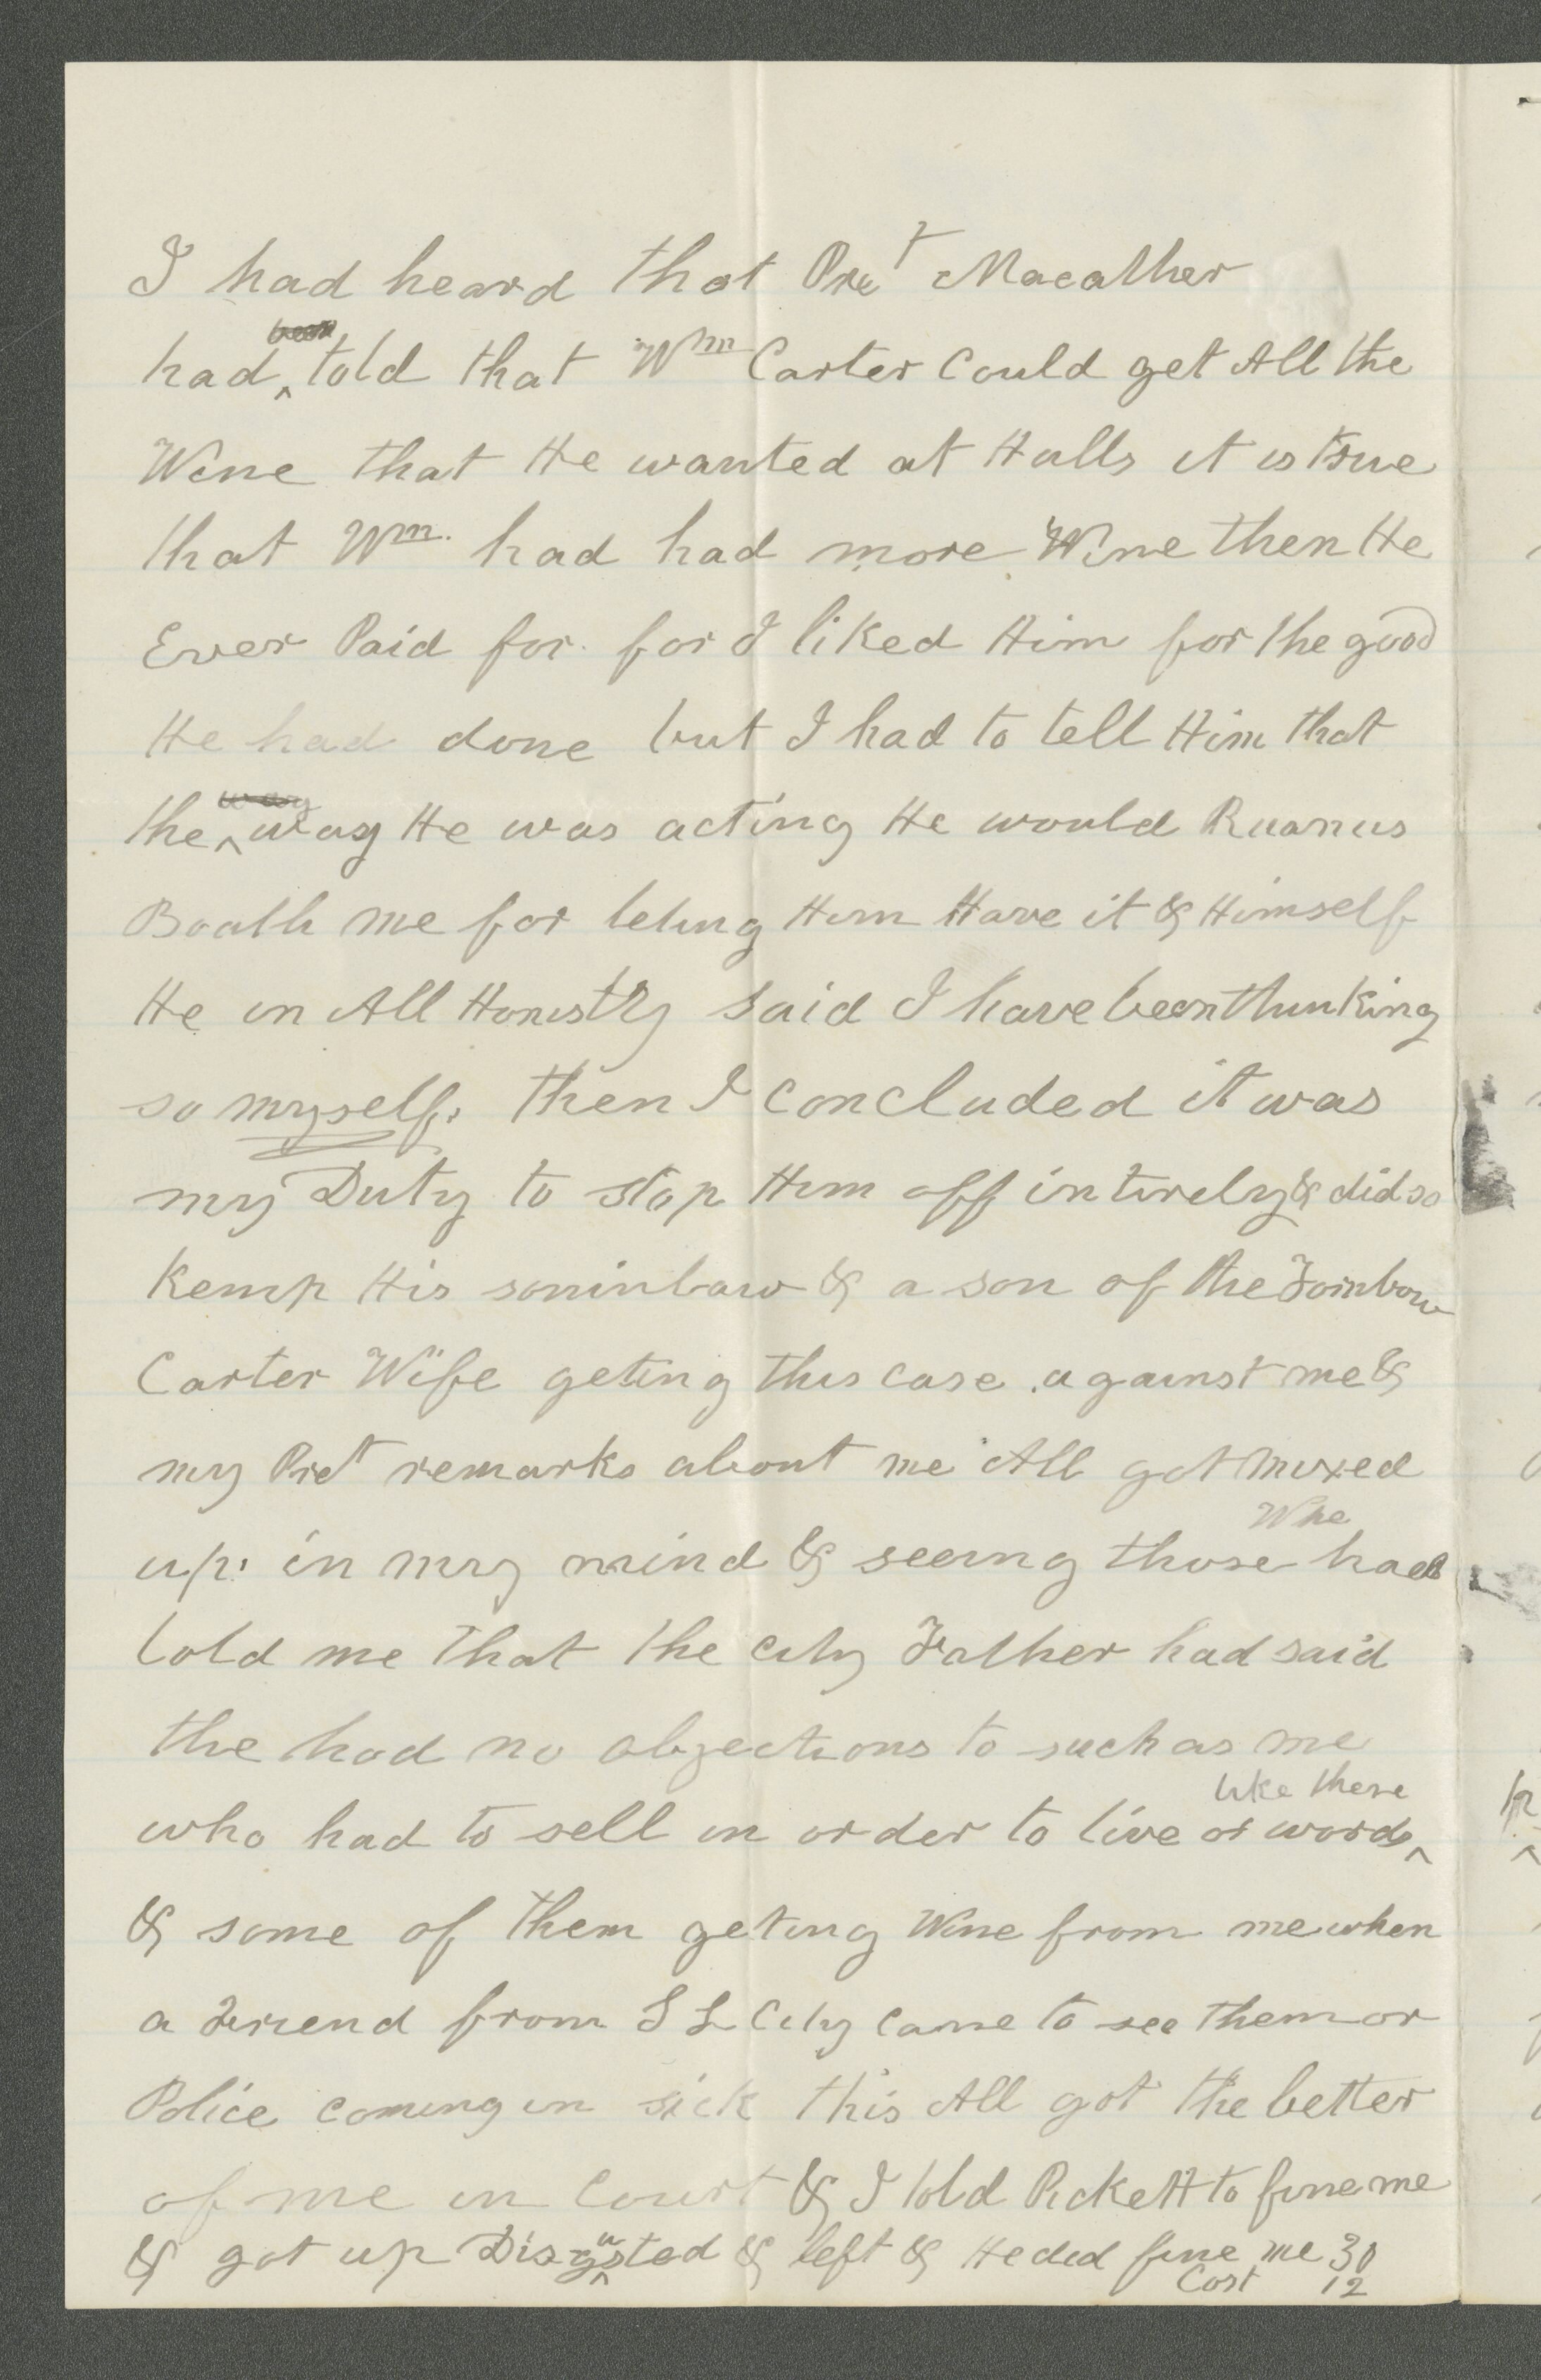 I had heard that Pret Macather
had been told that Wm Carter Could get All the
Wine that He wanted at Halls it is true
that Wm. had had more Wine then He
Ever Paid for. for I liked Him for the good
He had done but I had to tell Him that
the way way He was acting He would Ruanus
Boath me for leting Him Have it & Himself
He in All Honistry said I have been thinking
so myself. then I concluded it was
my Duty to stop Him off intirely & did so
Kemp His soninlaw & a son of the
Carter Wife geting this case against me &
my Pret remarks about me All got mixed
up. in my mind & seeing those Who had
told me that the city Father had said
the had no objections to such as me
who had to sell in order to live or words like these
& some of them geting Wine from me when
a friend from S L City came to see them or
Police coming in sick this All got the better
of me in Court & I told Pickett to fine me
& got up Disgusted & left & He did fine me 30
Cost 12